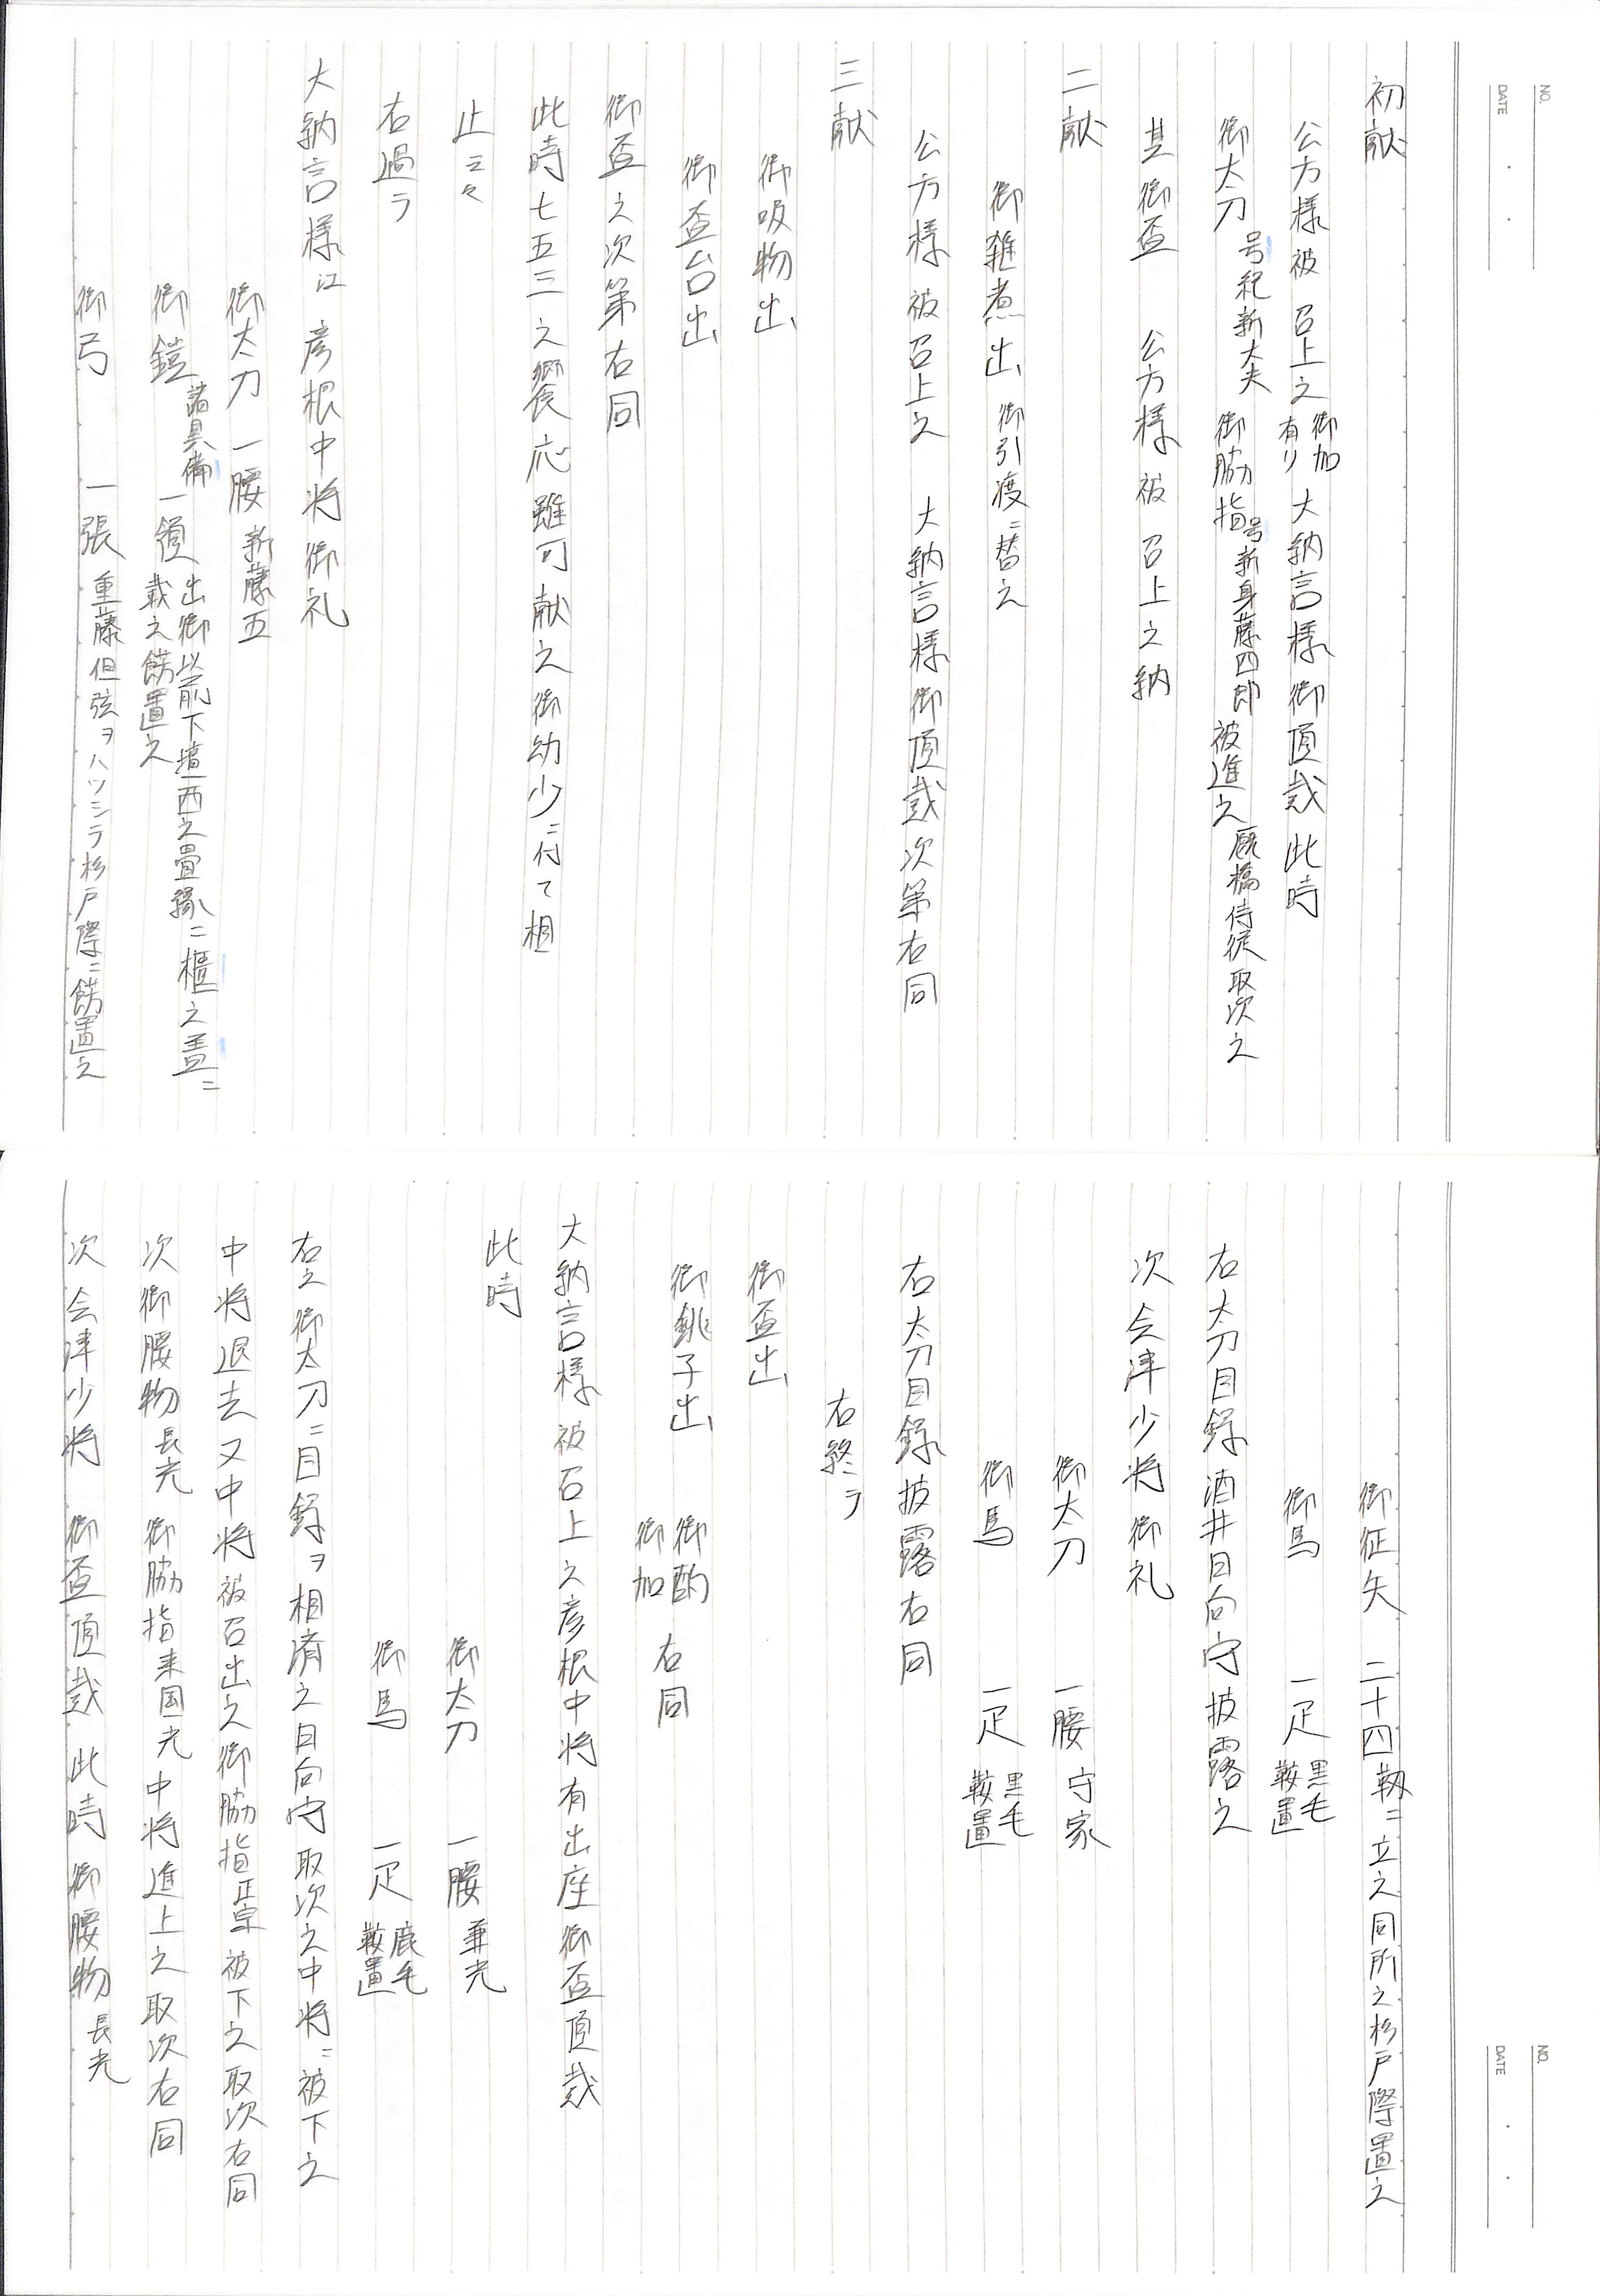 NO.
DATE
初献
公方様被召上之 御加有り 大納言様御頂戴此時
御太刀 号紀新大夫 御脇指 号新身藤四郎 被進之 厩橋侍従取次之
其御盃 公方様被召上之納
二献
御雑煮出 御引渡ニ替之
公方様被召上之 大納言様御頂戴次第右同
三献
御吸物出
御盃台出
御盃之次第右同
此時七五三之饗応雖可献之御幼少ニ付て相
止云々
右過ラ
大納言様江彦根中将御礼
御太刀 一腰 新藤五
御鎧 諸具備 一領 出御以前下壇西之畳縁ニ櫃之蓋ニ載之餝置之
御弓 一張 重藤但弦ヲハツシテ杉戸際ニ餝置之
NO.
DATE
御征矢 二十四靱ニ立之同所之杉戸際置之
御馬 一疋 黒毛鞍置
右太刀目録酒井日向守披露之
次会津少将御礼
御太刀 一腰 守家
御馬 一疋 黒毛鞍置
右太刀目録披露右同
右終ラ
御盃出
御銚子出 御酌御加 右同
大納言様被召上之彦根中将有出座御盃頂戴
此時
御太刀 一腰 兼光
御馬 一疋 鹿毛鞍置
右之御太刀ニ目録ヲ相済之日向守取次之中将ニ被下之
中将退去又中将被召出之御脇指正宗被下之取次右同
次御腰物長光御脇指来国光中将進上之取次右同
次会津少将 御盃頂戴此時御腰物長光